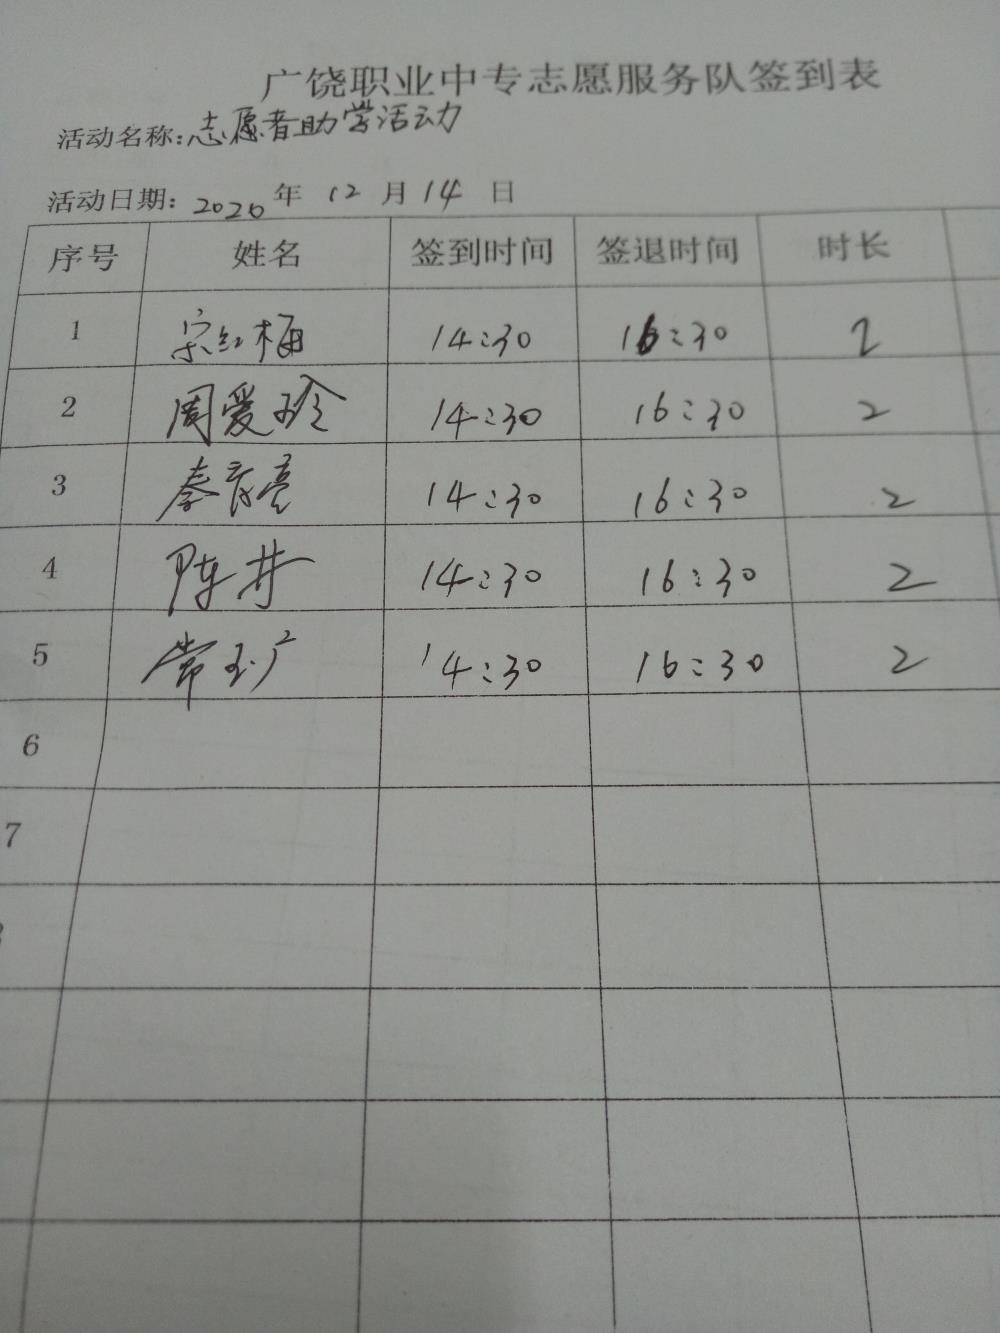 广饶职业中专志愿服务队签到表
活动名称:志愿者助学活动
活动日期: 2020 年 12 月 14 日
序号 姓名 签到时间 签退时间 时长
1 宋红梅 14:30 16:30 2
2 周爱玲 14:30 16:30 2
3 秦彦亮 14:30 16:30 2
4 陈井 14:30 16:30 2
5 常玉广 14:30 16:30 2
6
7